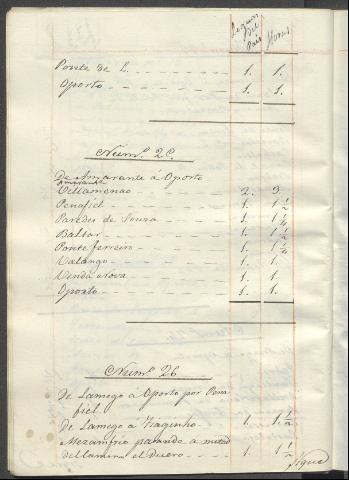 Leguas del Pais
Horas
Ponte de L. 1. 1.
Oporto 1. 1.
Numº. 2
De Amarante á Oporto
Amarante
Villamenao 2. 3
Penafiel 1. 1 1/2
Paredes de Souza 1. 1 1/4
Baltar 1. 1 1/2
Ponte ferreiro 1. 1 1/4
Valango 1. 1.
Venda nova 1. 1.
Oporto 1. 1.
Numº. 26
De Lamego á Oporto por Pena
fiel
de Lamego a 1. 1 1/2
Mezamfrio pasando a mitad
del camino el Duero 1. 1 1/2
Sigue